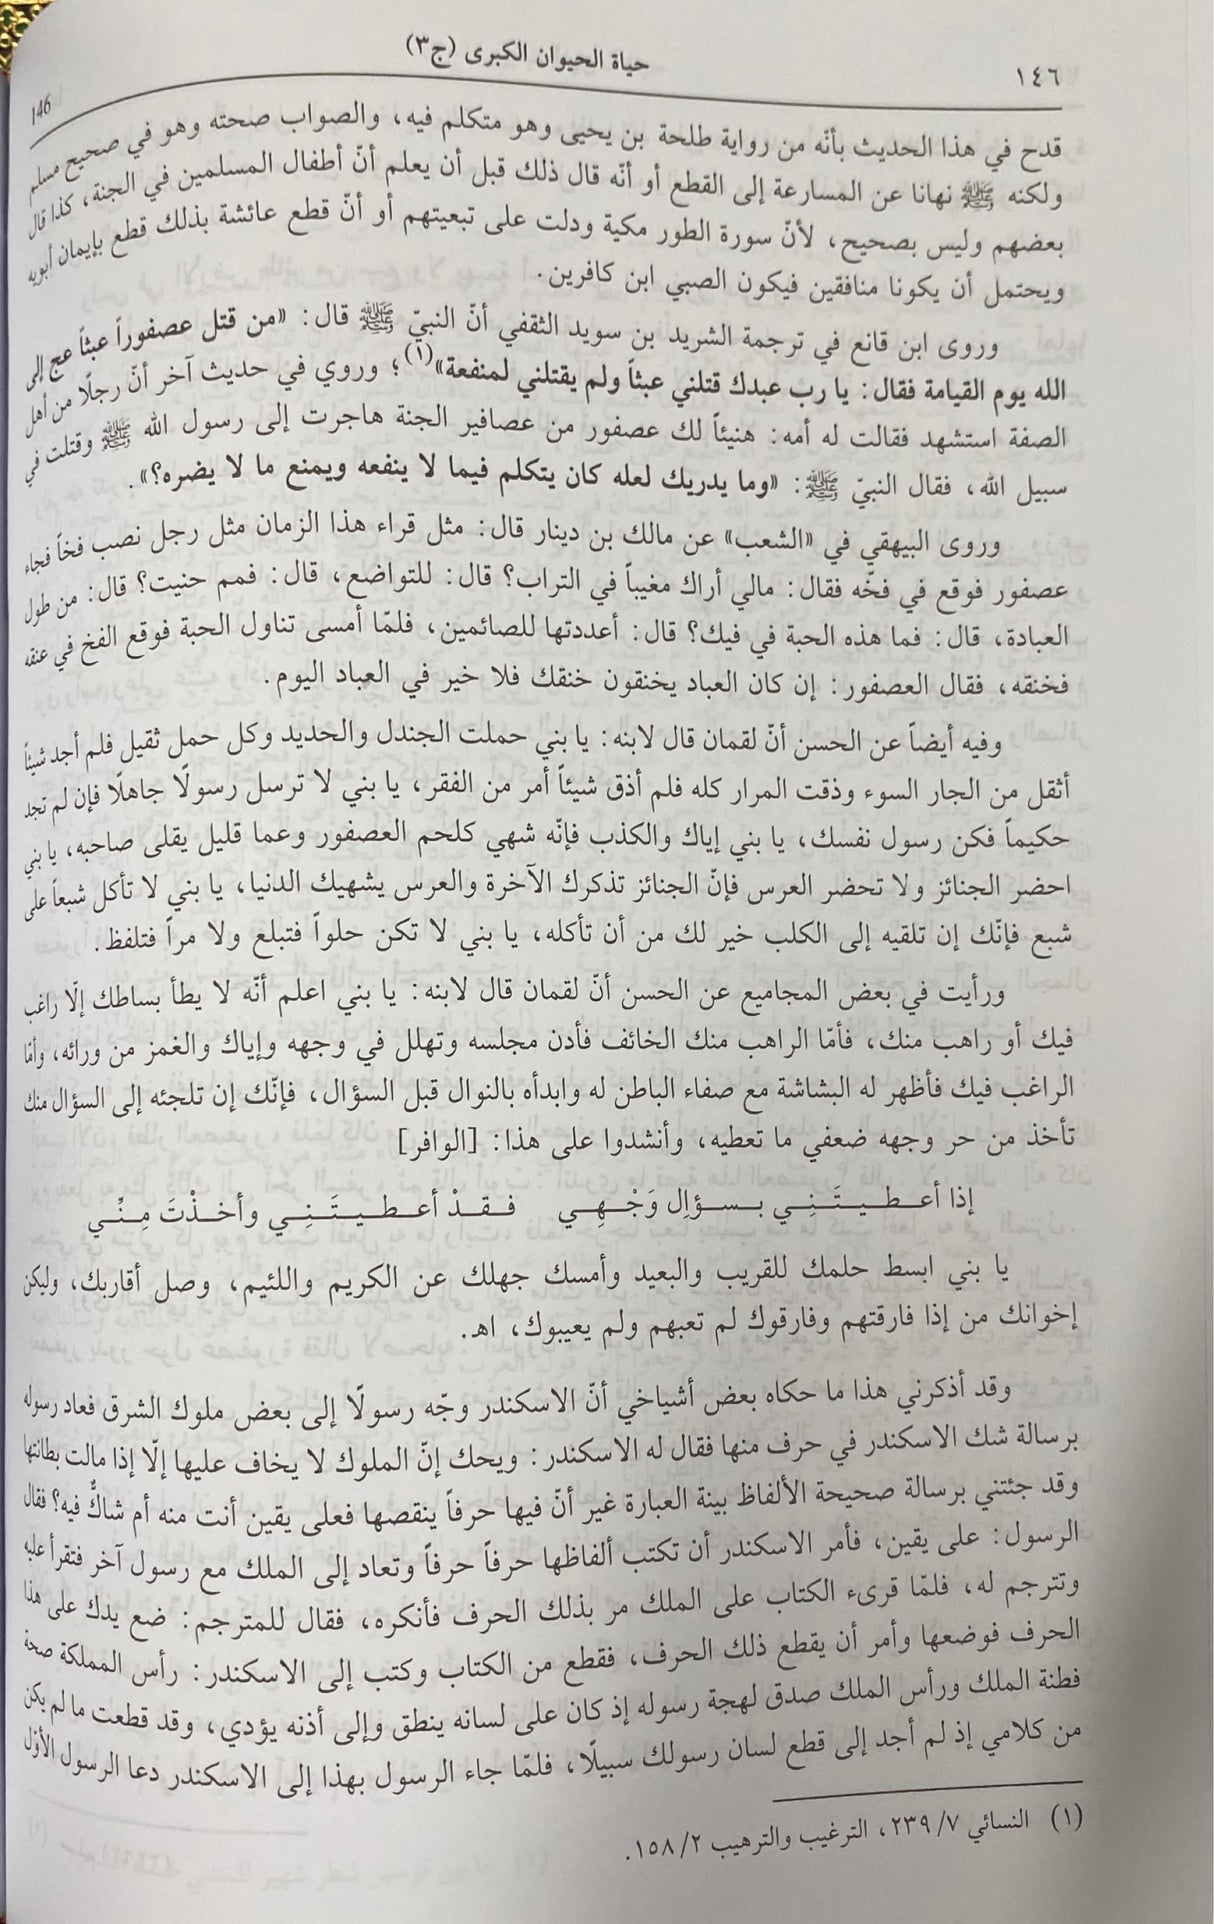 حياة الحيوان الكبرى (ج٣)
١٤٦
146
قدح في هذا الحديث بأنّه من رواية طلحة بن يحيى وهو متكلم فيه، والصواب صحته وهو في صحيح مسلم
ولكنه ﷺ نهانا عن المسارعة إلى القطع أو أنّه قال ذلك قبل أن يعلم أنّ أطفال المسلمين في الجنة، كذا قال
بعضهم وليس بصحيح، لأنّ سورة الطور مكية ودلت على تبعيتهم أو أنّ قطع عائشة بذلك قطع بإيمان أبويه
ويحتمل أن يكونا منافقين فيكون الصبي ابن كافرين.
وروى ابن قانع في ترجمة الشريد بن سويد الثقفي أنّ النبيّ ﷺ قال: «من قتل عصفوراً عبثاً عج إلى
الله يوم القيامة فقال: يا رب عبدك قتلني عبثاً ولم يقتلني لمنفعة»(١)؛ وروي في حديث آخر أنّ رجلًا من أهل
الصفة استشهد فقالت له أمه: هنيئاً لك عصفور من عصافير الجنة هاجرت إلى رسول الله ﷺ وقتلت في
سبيل الله، فقال النبيّ ﷺ: «وما يدريك لعله كان يتكلم فيما لا ينفعه ويمنع ما لا يضره؟».
وروى البيهقي في «الشعب» عن مالك بن دينار قال: مثل قراء هذا الزمان مثل رجل نصب فخاً فجاء
عصفور فوقع في فخّه فقال: مالي أراك مغيباً في التراب؟ قال: للتواضع، قال: فمم حنيت؟ قال: من طول
العبادة، قال: فما هذه الحبة في فيك؟ قال: أعددتها للصائمين، فلمّا أمسى تناول الحبة فوقع الفخ في عنقه
فخنقه، فقال العصفور: إن كان العباد يخنقون خنقك فلا خير في العباد اليوم.
وفيه أيضاً عن الحسن أنّ لقمان قال لابنه: يا بني حملت الجندل والحديد وكل حمل ثقيل فلم أجد شيئاً
أثقل من الجار السوء وذقت المرار كله فلم أذق شيئاً أمر من الفقر، يا بني لا ترسل رسولًا جاهلًا فإن لم تجد
حكيماً فكن رسول نفسك، يا بني إياك والكذب فإنّه شهي كلحم العصفور وعما قليل يقلى صاحبه، يا بني
احضر الجنائز ولا تحضر العرس فإنّ الجنائز تذكرك الآخرة والعرس يشهيك الدنيا، يا بني لا تأكل شبعاً على
شبع فإنّك إن تلقيه إلى الكلب خير لك من أن تأكله، يا بني لا تكن حلواً فتبلع ولا مراً فتلفظ.
ورأيت في بعض المجاميع عن الحسن أنّ لقمان قال لابنه: يا بني اعلم أنّه لا يطأ بساطك إلّا راغب
فيك أو راهب منك، فأمّا الراهب منك الخائف فأدن مجلسه وتهلل في وجهه وإياك والغمز من ورائه، وأمّا
الراغب فيك فأظهر له البشاشة مع صفاء الباطن له وابدأه بالنوال قبل السؤال، فإنّك إن تلجئه إلى السؤال منك
تأخذ من حر وجهه ضعفي ما تعطيه، وأنشدوا على هذا: [الوافر]
إذا أعـطـيـتَـنِـي بـسـؤالِ وَجْـهِـي فـقـدْ أعـطـيـتَـنِـي وأخـذْتَ مِـنِّـي
يا بني ابسط حلمك للقريب والبعيد وأمسك جهلك عن الكريم واللئيم، وصل أقاربك، وليكن
إخوانك من إذا فارقتهم وفارقوك لم تعبهم ولم يعيبوك، اهـ.
وقد أذكرني هذا ما حكاه بعض أشياخي أنّ الاسكندر وجّه رسولًا إلى بعض ملوك الشرق فعاد رسوله
برسالة شك الاسكندر في حرف منها فقال له الاسكندر: ويحك إنّ الملوك لا يخاف عليها إلّا إذا مالت بطانتها
وقد جئتني برسالة صحيحة الألفاظ بينة العبارة غير أنّ فيها حرفاً ينقصها فعلى يقين أنت منه أم شاكٌّ فيه؟ فقال
الرسول: على يقين، فأمر الاسكندر أن تكتب ألفاظها حرفاً حرفاً وتعاد إلى الملك مع رسول آخر فتقرأ عليه
وتترجم له، فلمّا قرىء الكتاب على الملك مر بذلك الحرف فأنكره، فقال للمترجم: ضع يدك على هذا
الحرف فوضعها وأمر أن يقطع ذلك الحرف، فقطع من الكتاب وكتب إلى الاسكندر: رأس المملكة صحة
فطنة الملك ورأس الملك صدق لهجة رسوله إذ كان على لسانه ينطق وإلى أذنه يؤدي، وقد قطعت ما لم يكن
من كلامي إذ لم أجد إلى قطع لسان رسولك سبيلًا، فلمّا جاء الرسول بهذا إلى الاسكندر دعا الرسول الأوّل
(١) النسائي ٢٣٩/٧، الترغيب والترهيب ١٥٨/٢.